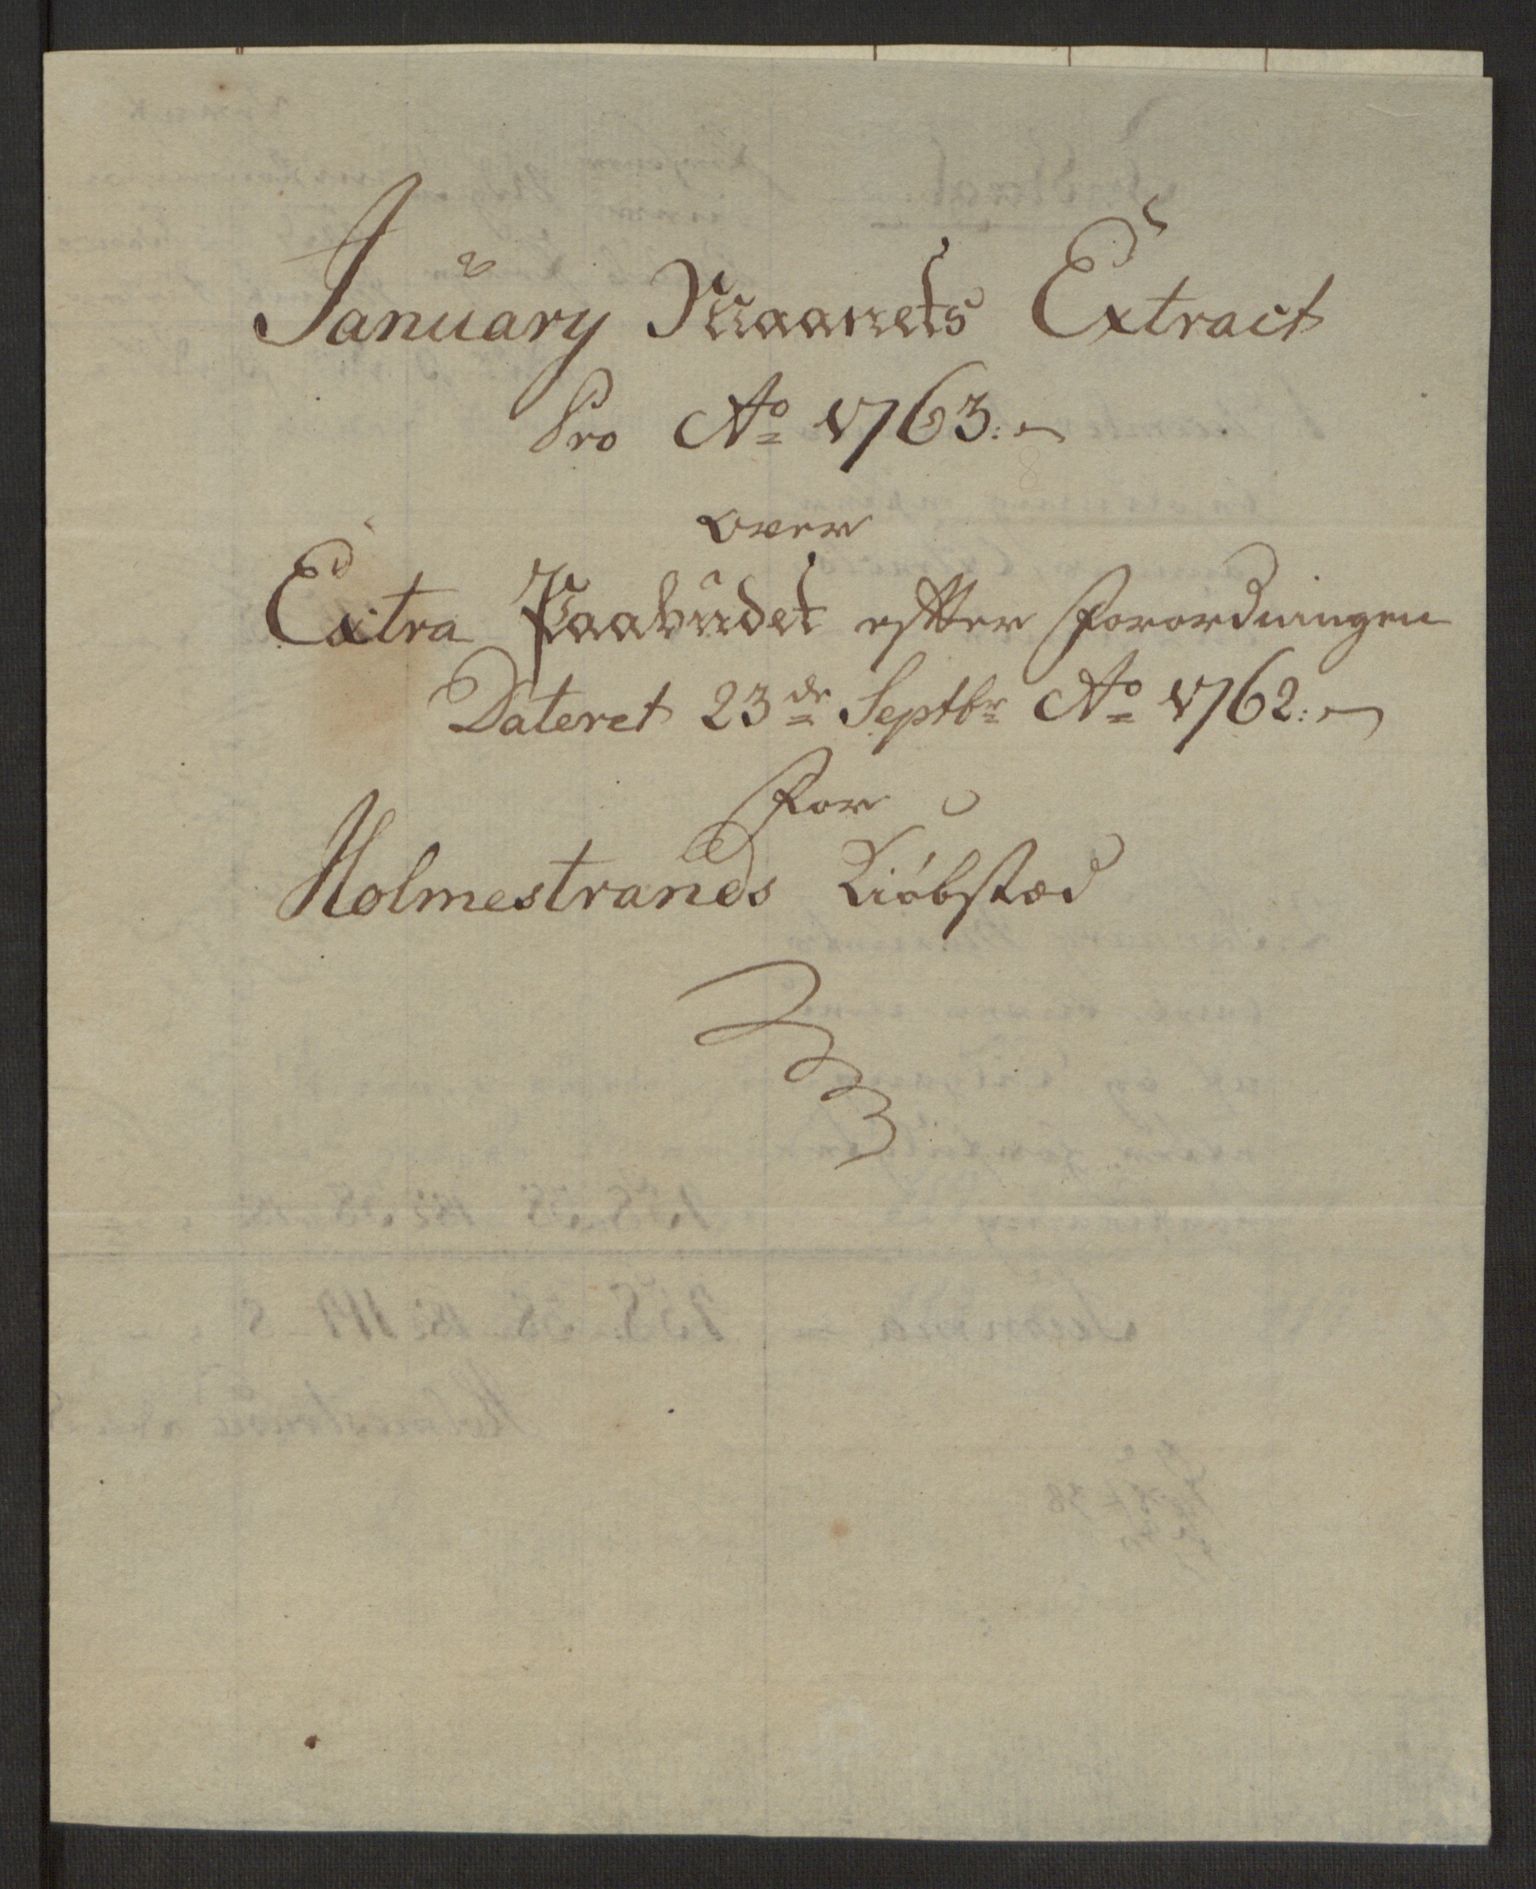 January Maanets Extract
Pro Ao 1763.
over
Extra Paabudet efter Forordningen
Dateret 23de Septbr Ao 1762.
For
Holmestrands Kiøbstæd